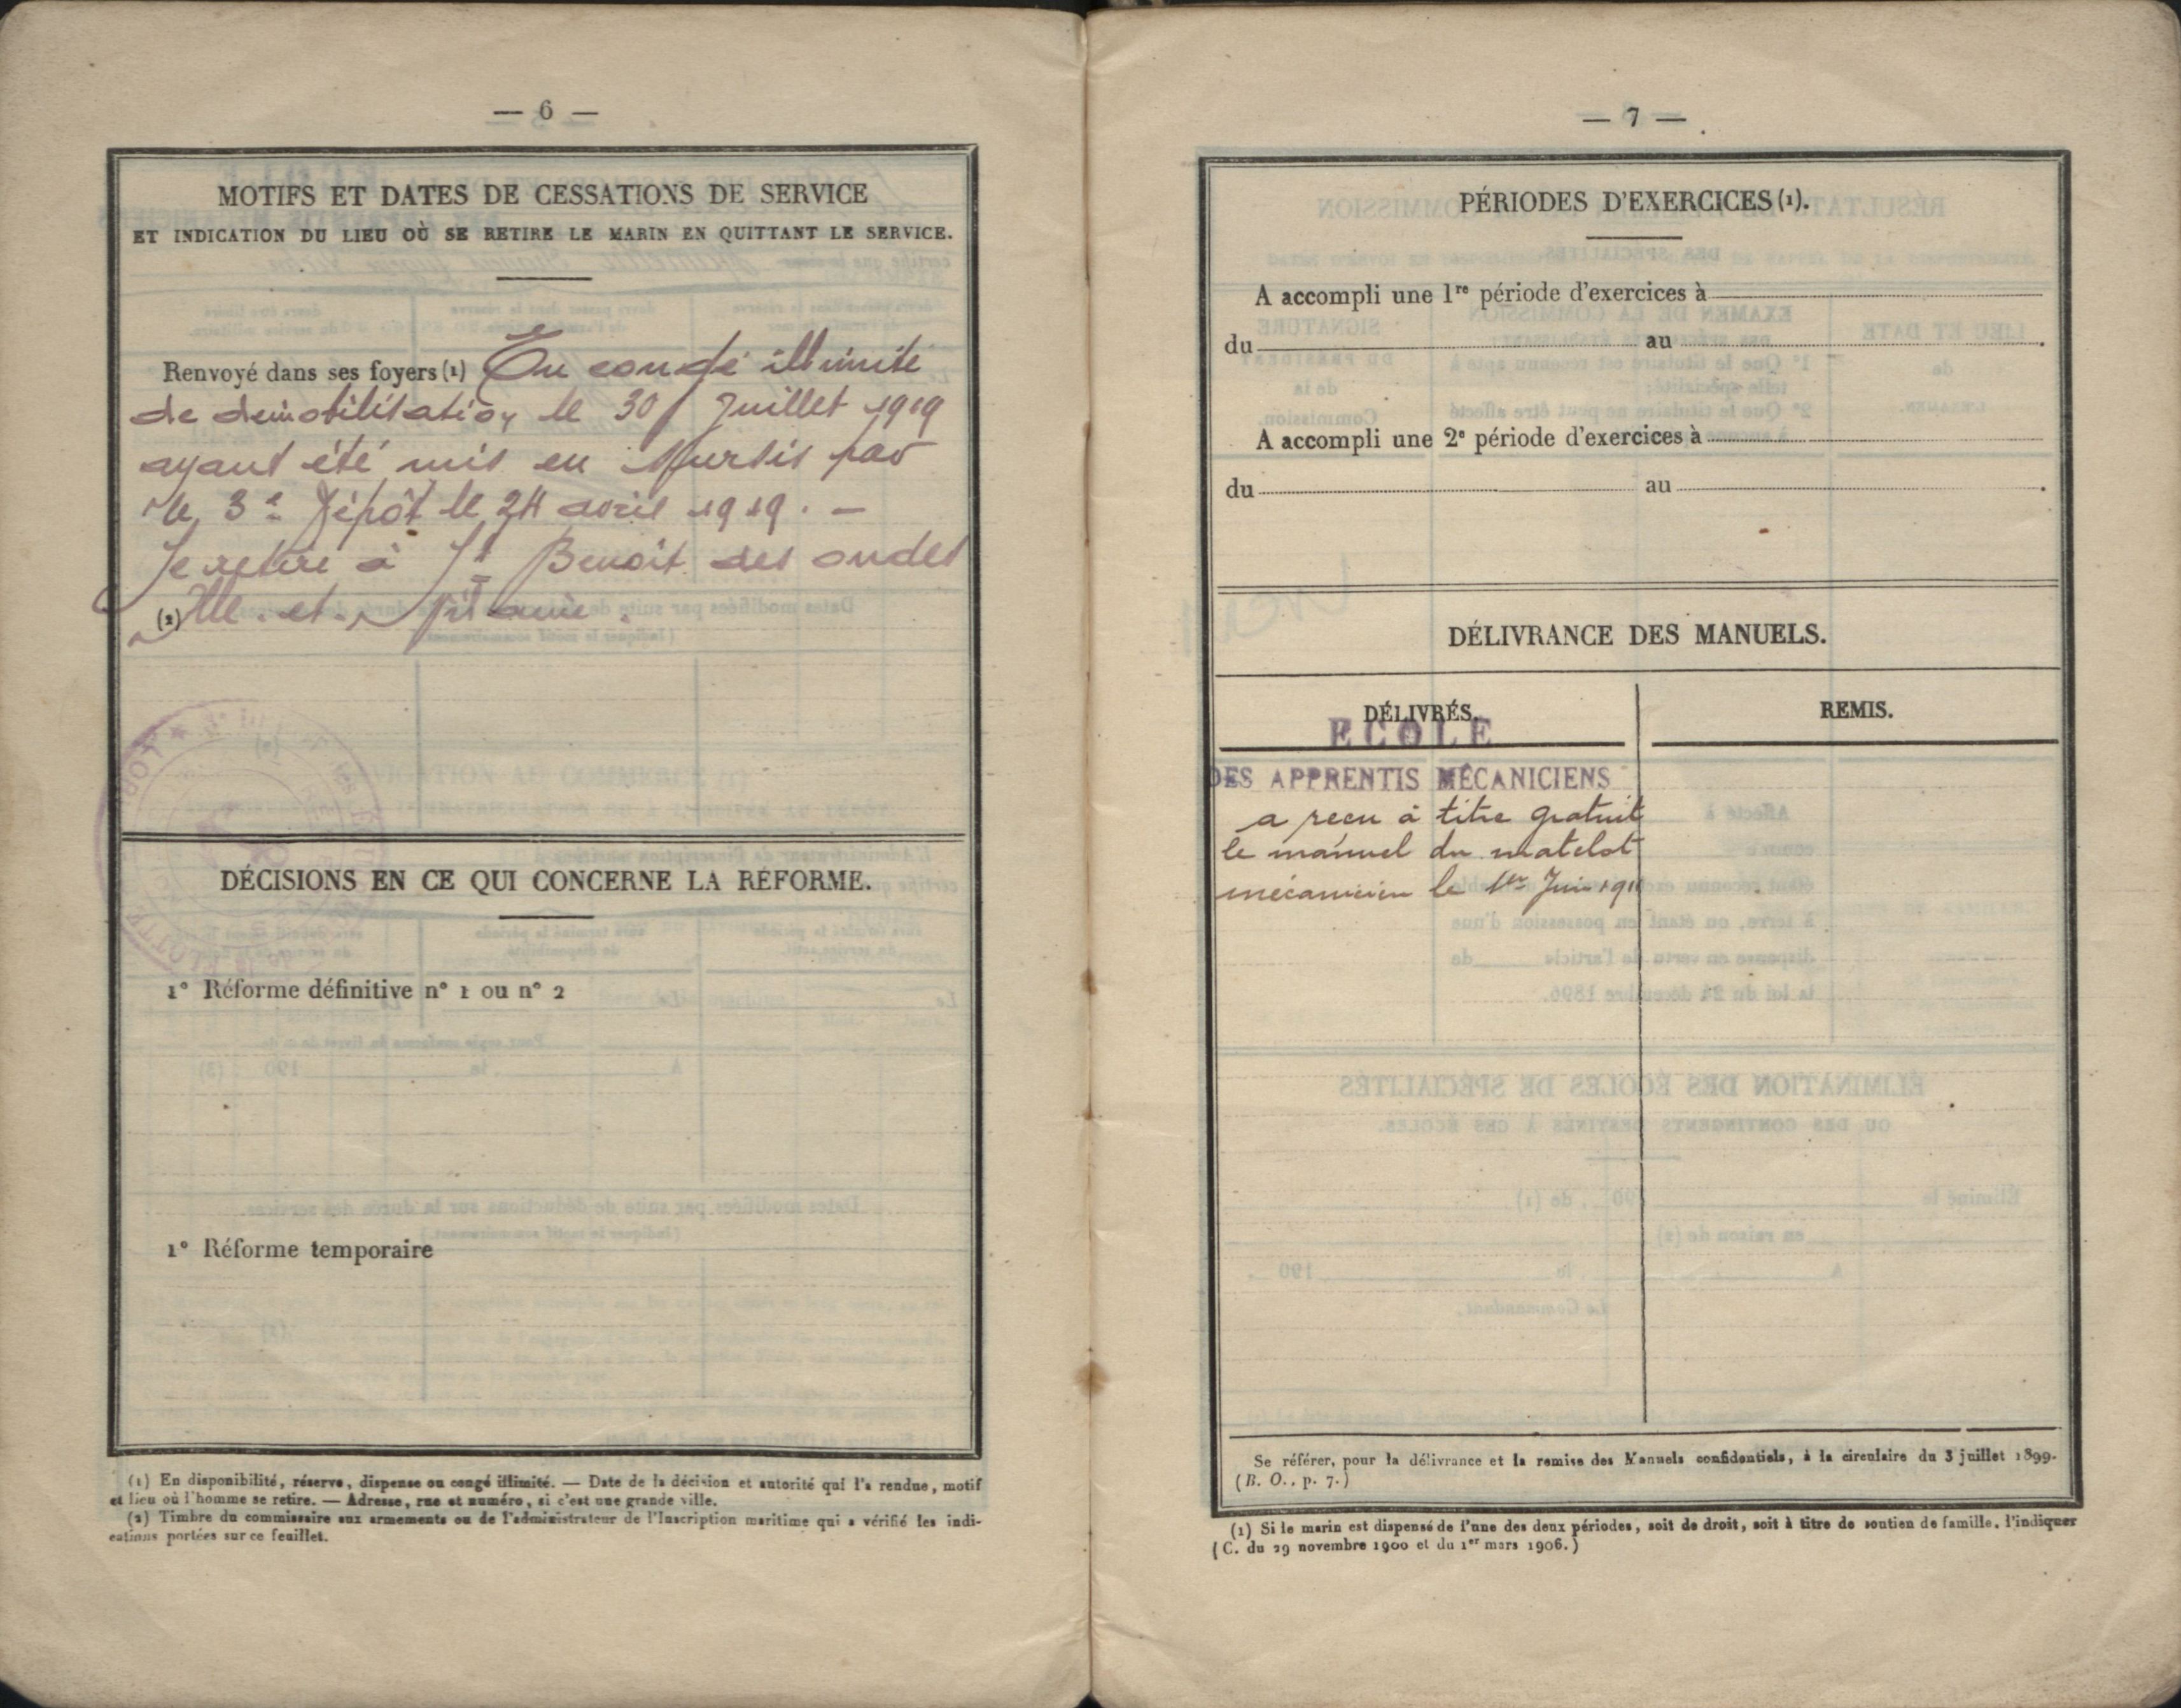 — 6 —
MOTIFS ET DATES DE CESSATIONS DE SERVICE
ET INDICATION DU LIEU OÙ SE RETIRE LE MARIN EN QUITTANT LE SERVICE.
Renvoyé dans ses foyers (1) En congé illimité
de démobilisation le 30 Juillet 1919
ayant été mis en sursis par
le 3e Dépôt le 24 avril 1919. —
Se retire à St Benoit des ondes
(2) Ille-et-Vilaine.
DÉCISIONS EN CE QUI CONCERNE LA RÉFORME.
1° Réforme définitive n° 1 ou n° 2
1° Réforme temporaire
(1) En disponibilité, réserve, dispense ou congé illimité. — Date de la décision et autorité qui l'a rendue, motif
et lieu où l'homme se retire. — Adresse, rue et numéro, si c'est une grande ville.
(2) Timbre du commissaire aux armements ou de l'administrateur de l'Inscription maritime qui a vérifié les indi-
cations portées sur ce feuillet.
— 7 —
PÉRIODES D'EXERCICES (1).
A accompli une 1re période d'exercices à
du au .
A accompli une 2e période d'exercices à
du au .
DÉLIVRANCE DES MANUELS.
DÉLIVRÉS. REMIS.
ECOLE
DES APPRENTIS MÉCANICIENS
a recu à titre gratuit
le manuel du matelot
mécanicien le 1er Juin
Se référer, pour la délivrance et la remise des Manuels confidentiels, à la circulaire du 3 juillet 1899.
(B. O., p. 7.)
(1) Si le marin est dispensé de l'une des deux périodes, soit de droit, soit à titre de soutien de famille, l'indiquer
(C. du 29 novembre 1900 et du 1er mars 1906.)